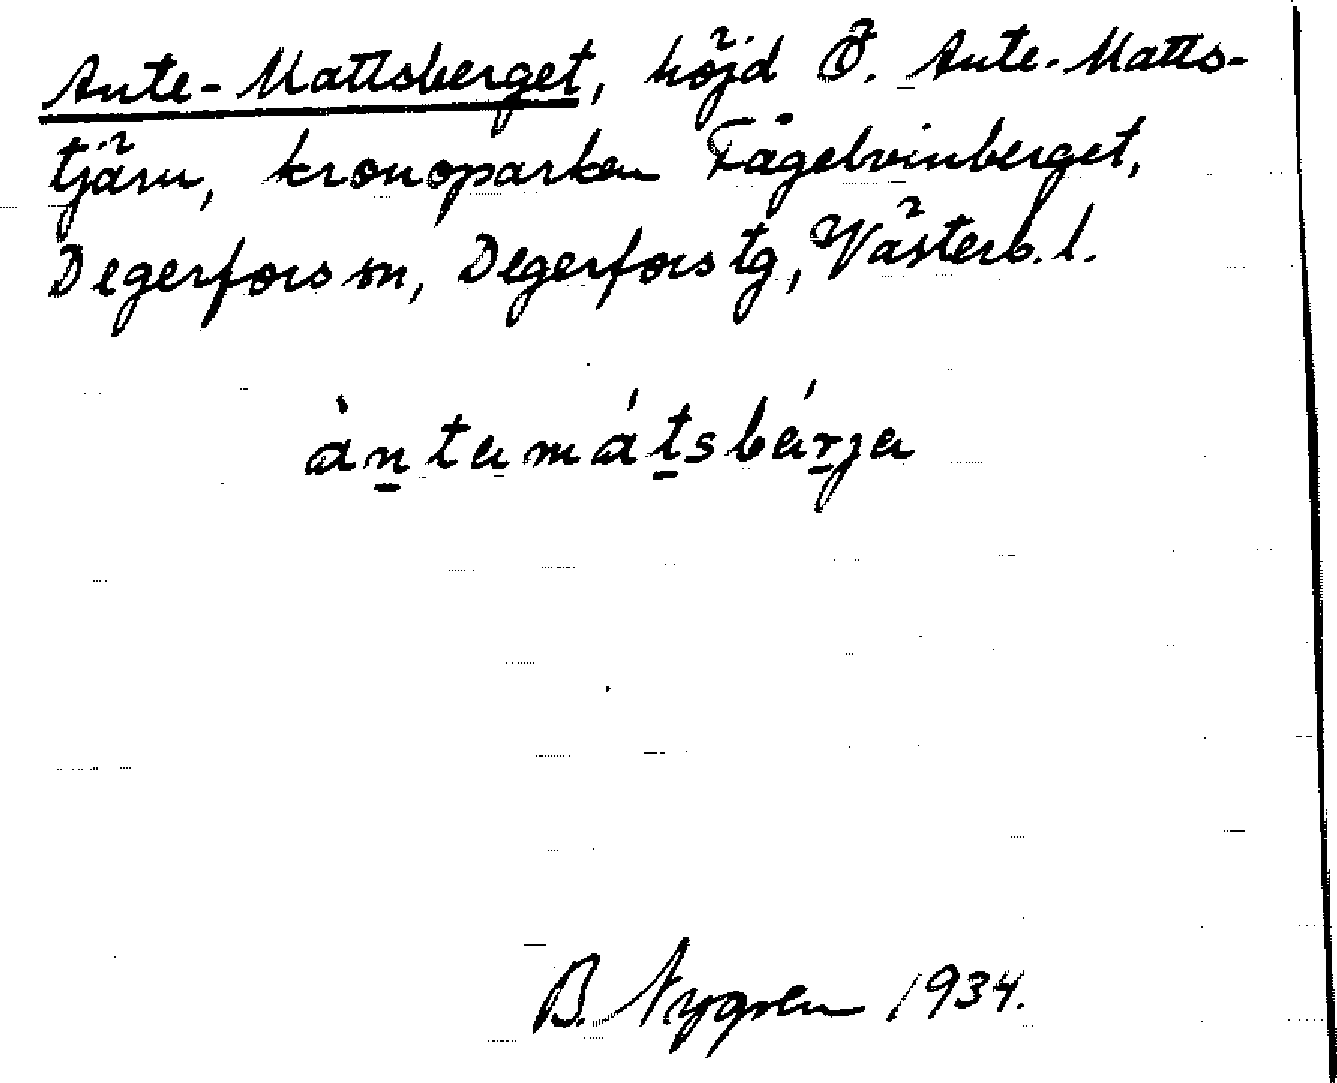 Ante-Mattsberget, höjd Ö. Ante-Matts-
tjärn, kronoparken Fågelvinberget,
Degerfors sn, Degerfors tg, Västerb. l.
àn̲tamát̲sbár̲ja
B. Nygren 1934.